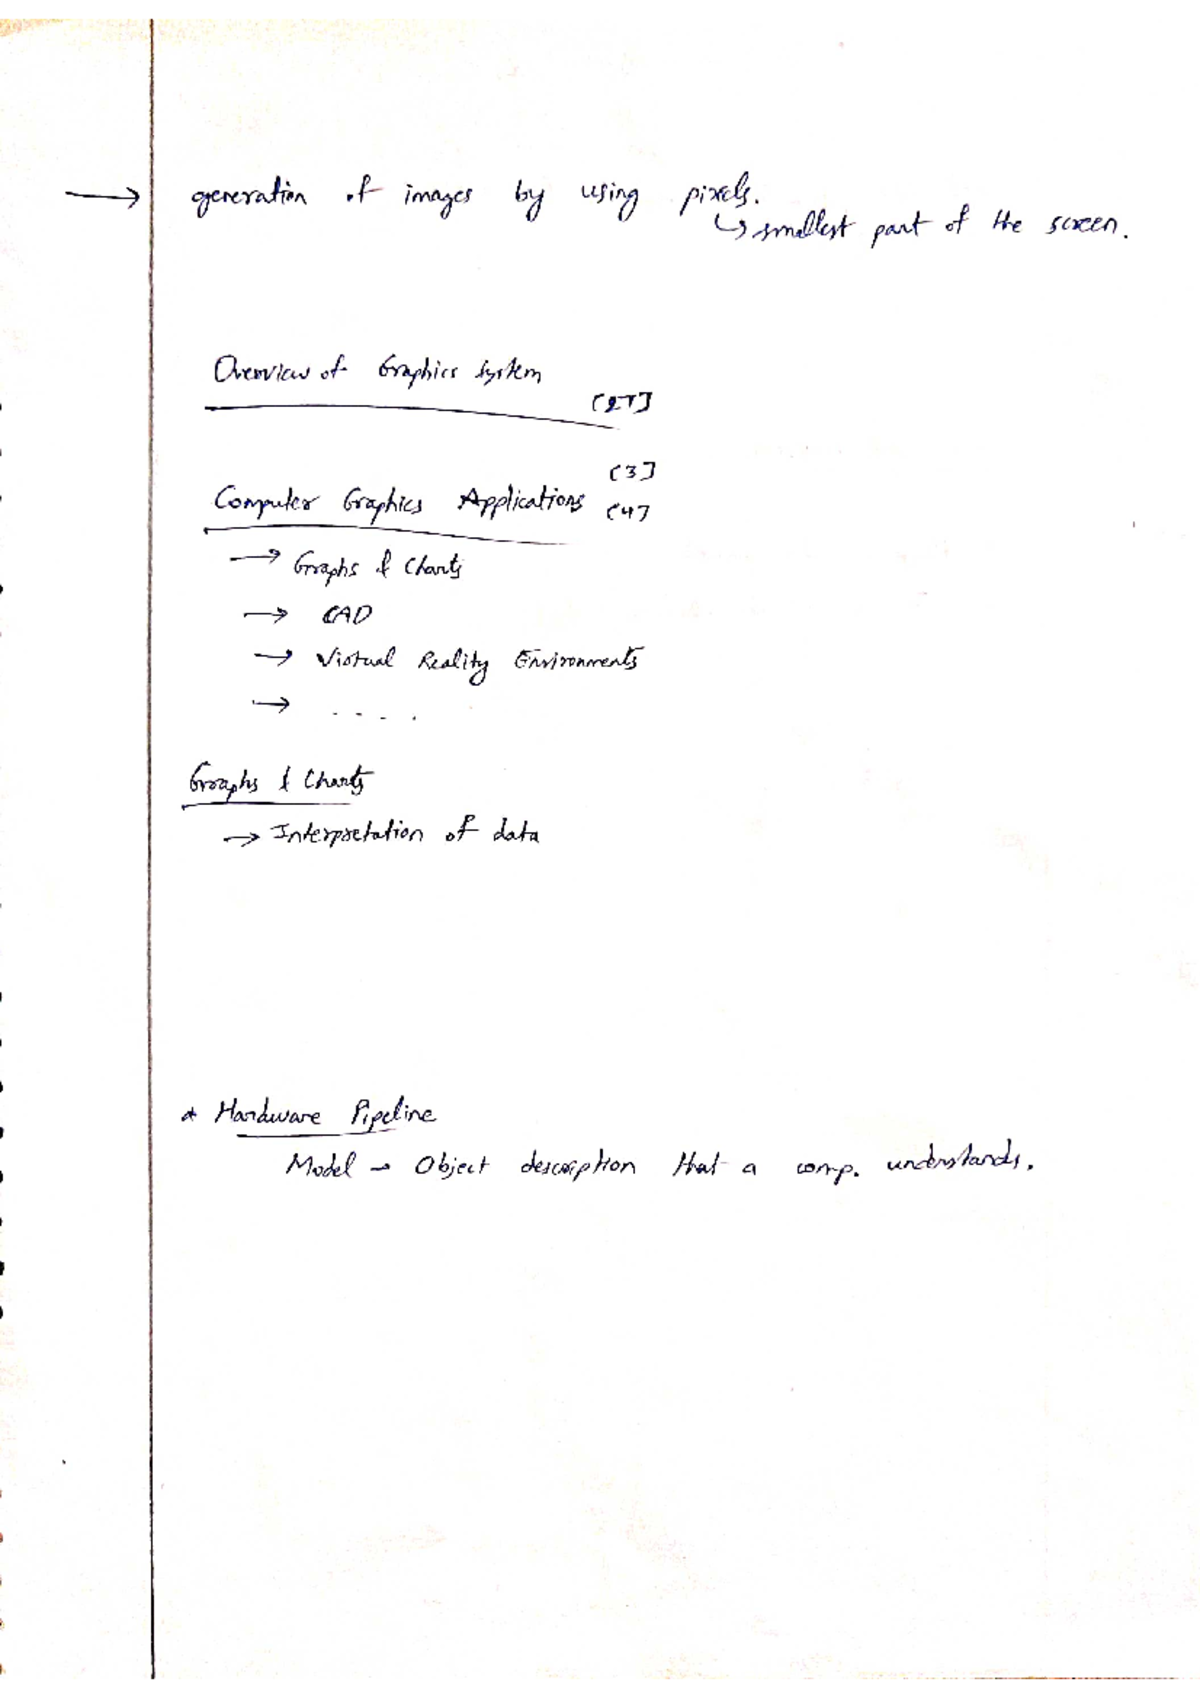 → generation of images by using pixels.
↳ smallest part of the screen.
Overview of Graphics System
[27]
[3]
Computer Graphics Applications [4]
→ Graphs & Charts
→ CAD
→ Virtual Reality Environments
→ . . . . .
Graphs & Charts
→ Interpretation of data
* Hardware Pipeline
Model → Object description that a comp. understands.